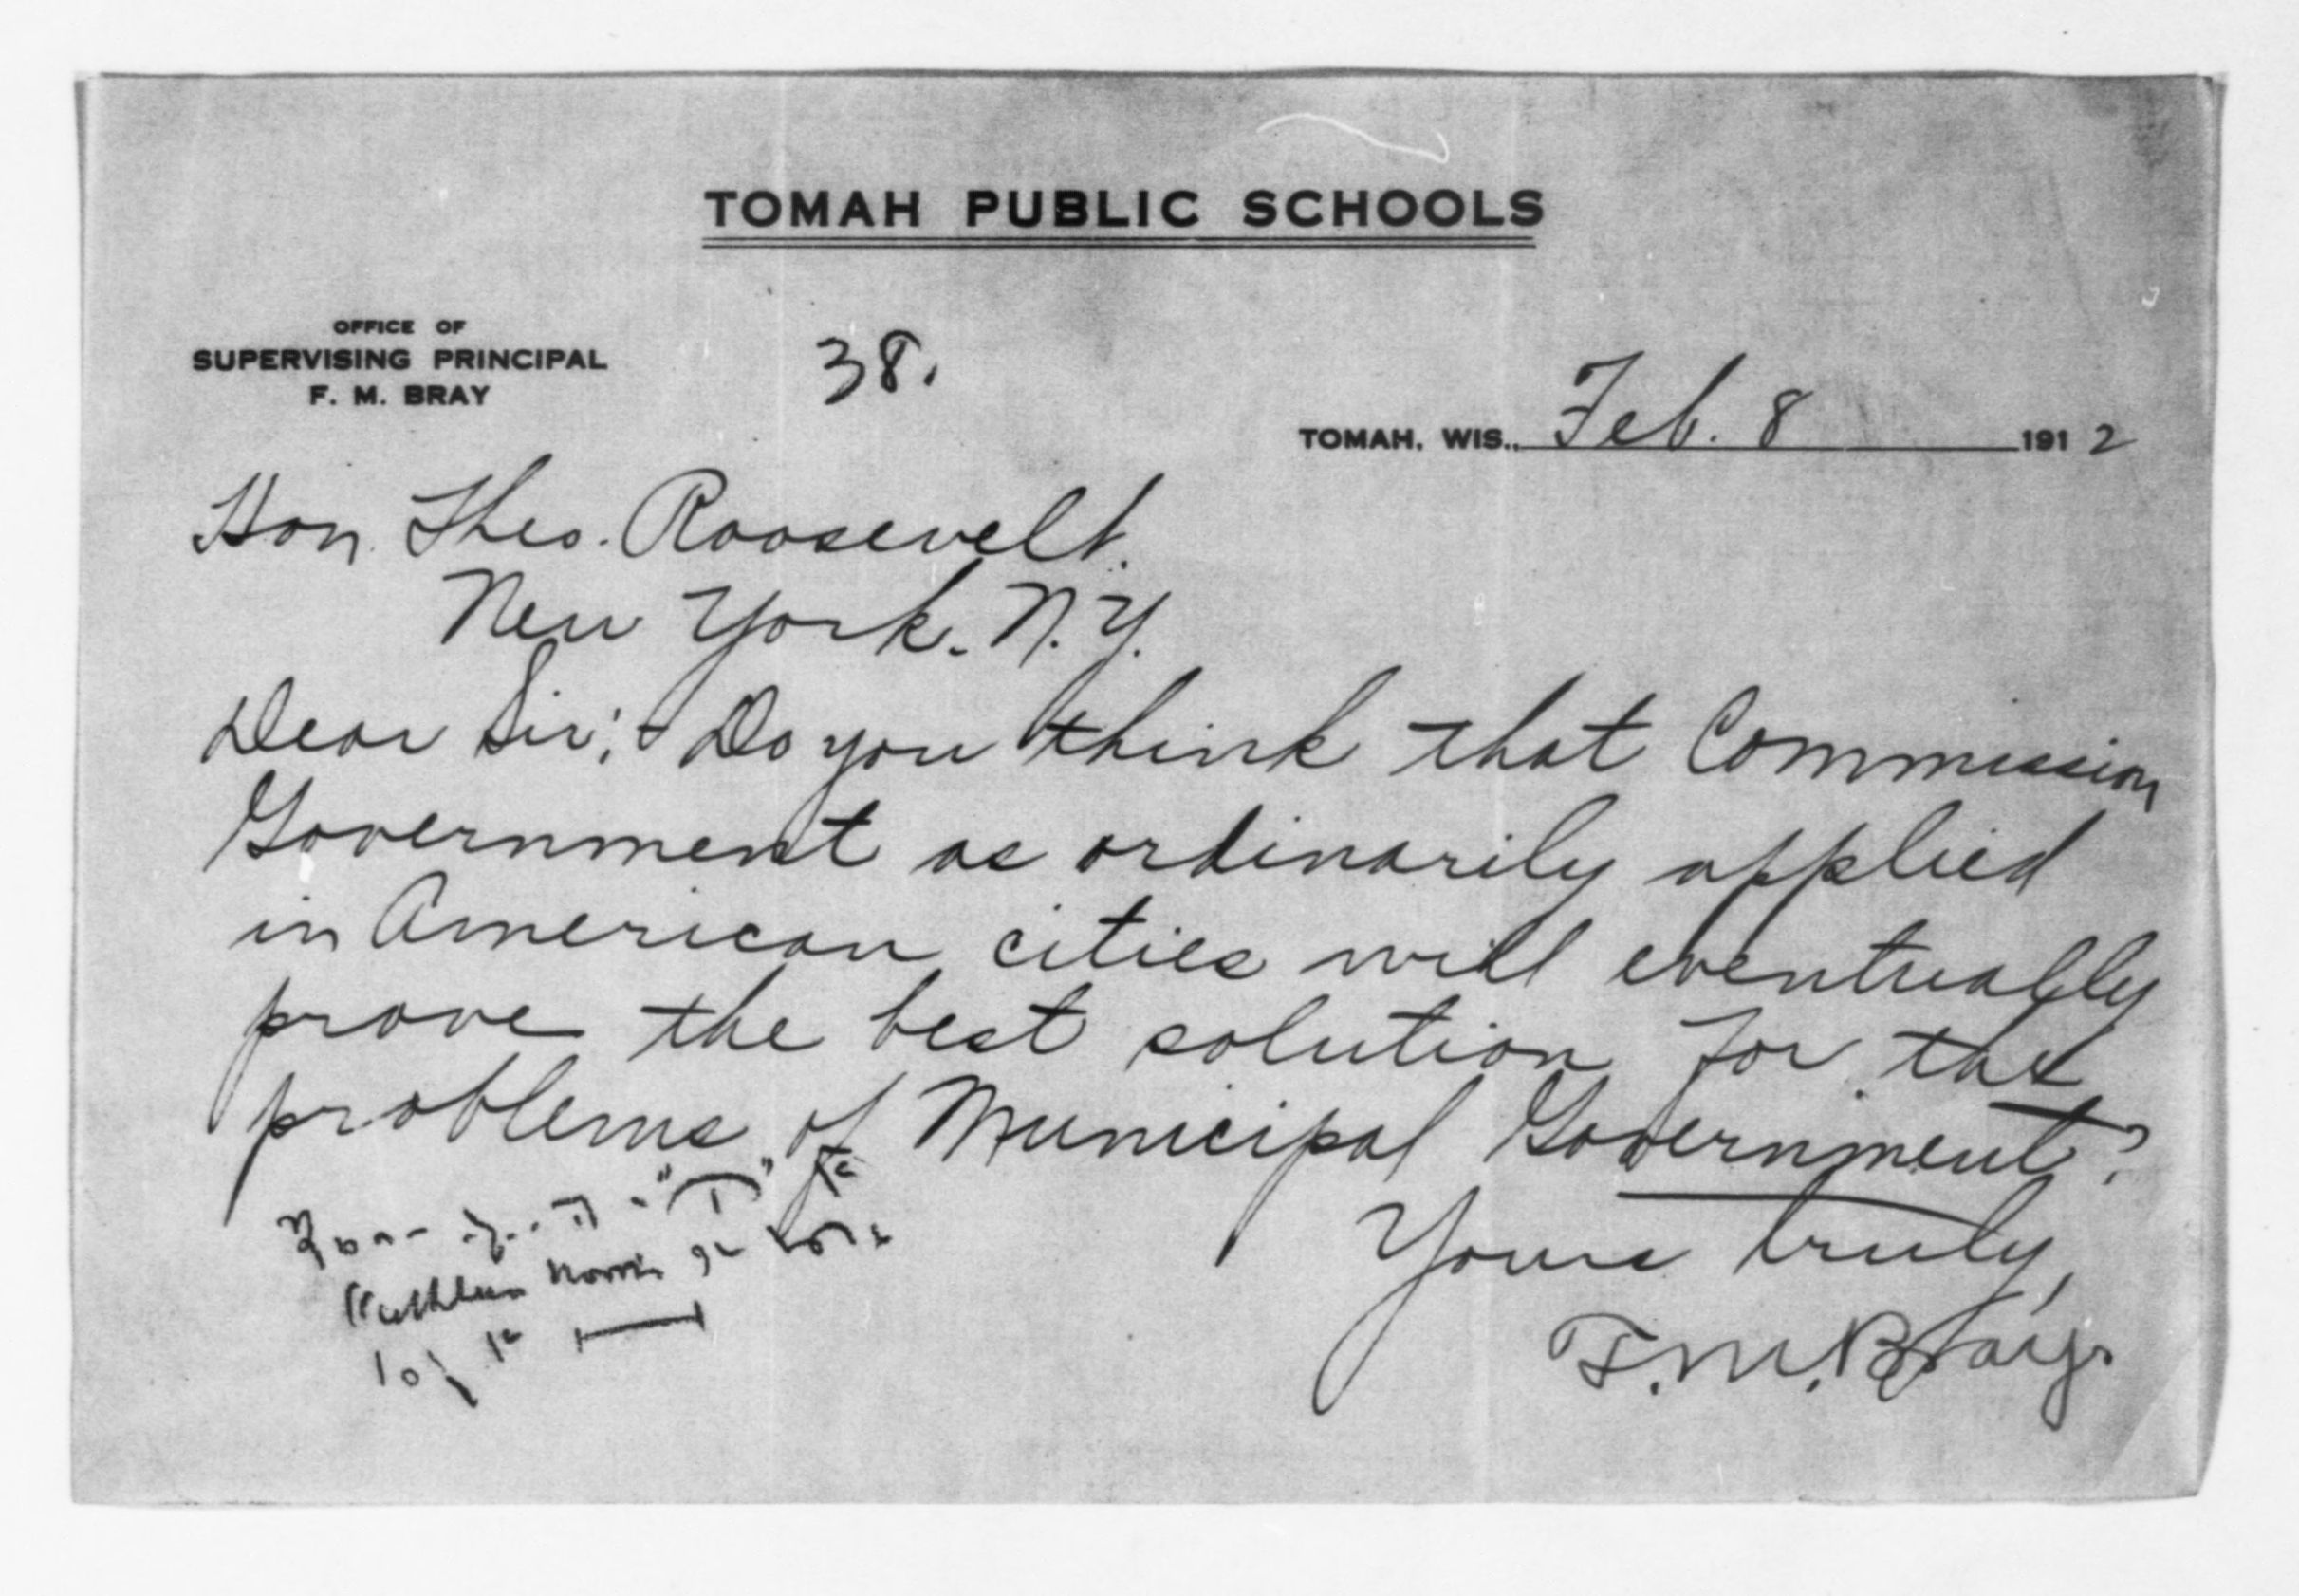 TOMAH PUBLIC SCHOOLS
OFFICE OF
SUPERVISING PRINCIPAL
F. M. BRAY
38.
TOMAH, WIS., Feb. 8 1912
Hon. Theo. Roosevelt.
New York. N.Y.
Dear Sir:- Do you think that Commission
Government as ordinarily applied
in American cities will eventually
prove the best solution for the
problems of Municipal Government?
Yours truly,
F. M. Bray.
Kathleen Norris